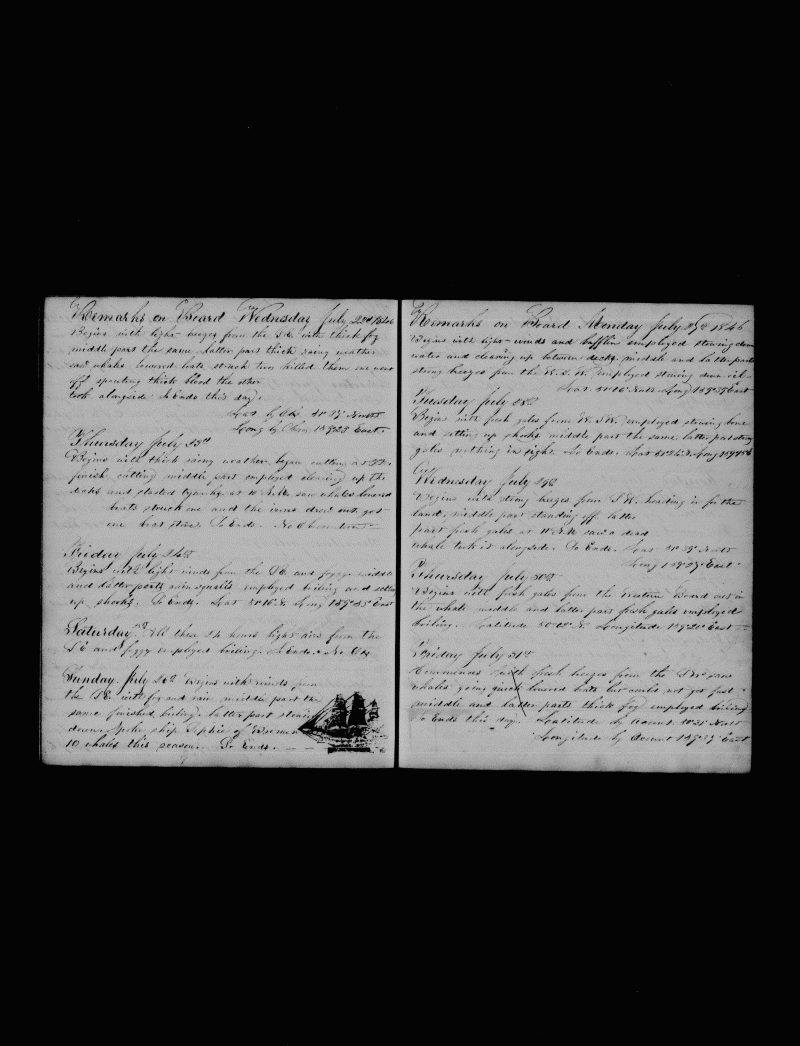 Remarks on Board Wednesday July 22nd 1846
Begins with light breezes from the SE with thick fog
middle part the same latter part thick rainy weather
saw whales lowered boats struck two killed them one went
off spouting thick blood the other
took alongside So Ends this day.
Lat by Obs North
Long by Chro East
Thursday July 23rd
Begins with thick rainy weather began cutting at
finish cutting middle part employed clearing up the
decks and started trying at 10 A.M. saw whales lowered
boats struck one and the irons drew out got
one boat stove So Ends. No Observation
Friday July 24th
Begins with light winds from the SE and foggy middle
and latter parts rain squalls employed boiling and setting
up shooks. So Ends. Lat Long East
Saturday These 24 hours light airs from the
SE and foggy employed boiling. So Ends. No Obs
Sunday July 26th Begins with winds from
the SE with fog and rain middle part the
same finished boiling. Latter part stowing
down. Spoke ship Sophie of Bremen
10 whales this season. So Ends.
Remarks on Board Monday July 27th 1846
Begins with light winds and baffling employed stowing down
water and clearing up between decks middle and latter parts
strong breezes from the W.S.W. employed stowing down oil
Lat North Long East
Tuesday July 28th
Begins with fresh gales from W.S.W. employed stowing bone
and setting up shooks middle part the same latter part strong
gales nothing in sight. So Ends. Lat Long
Wednesday July 29th
Begins with strong breezes from S.W. heading in for the
land. middle part standing off. latter
part fresh gales at A.M. saw a dead
whale took it alongside. So Ends. Lat North
Long East
Thursday July 30th
Begins with fresh gales from the Western Board cut in
the whale middle and latter parts fresh gales employed
boiling. Latitude N. Longitude East
Friday July 31st
Commences with fresh breezes from the saw
whales going quick lowered boats but could not get fast
middle and latter parts thick fog employed boiling
So Ends this day. Latitude by Account North
Longitude by Account East